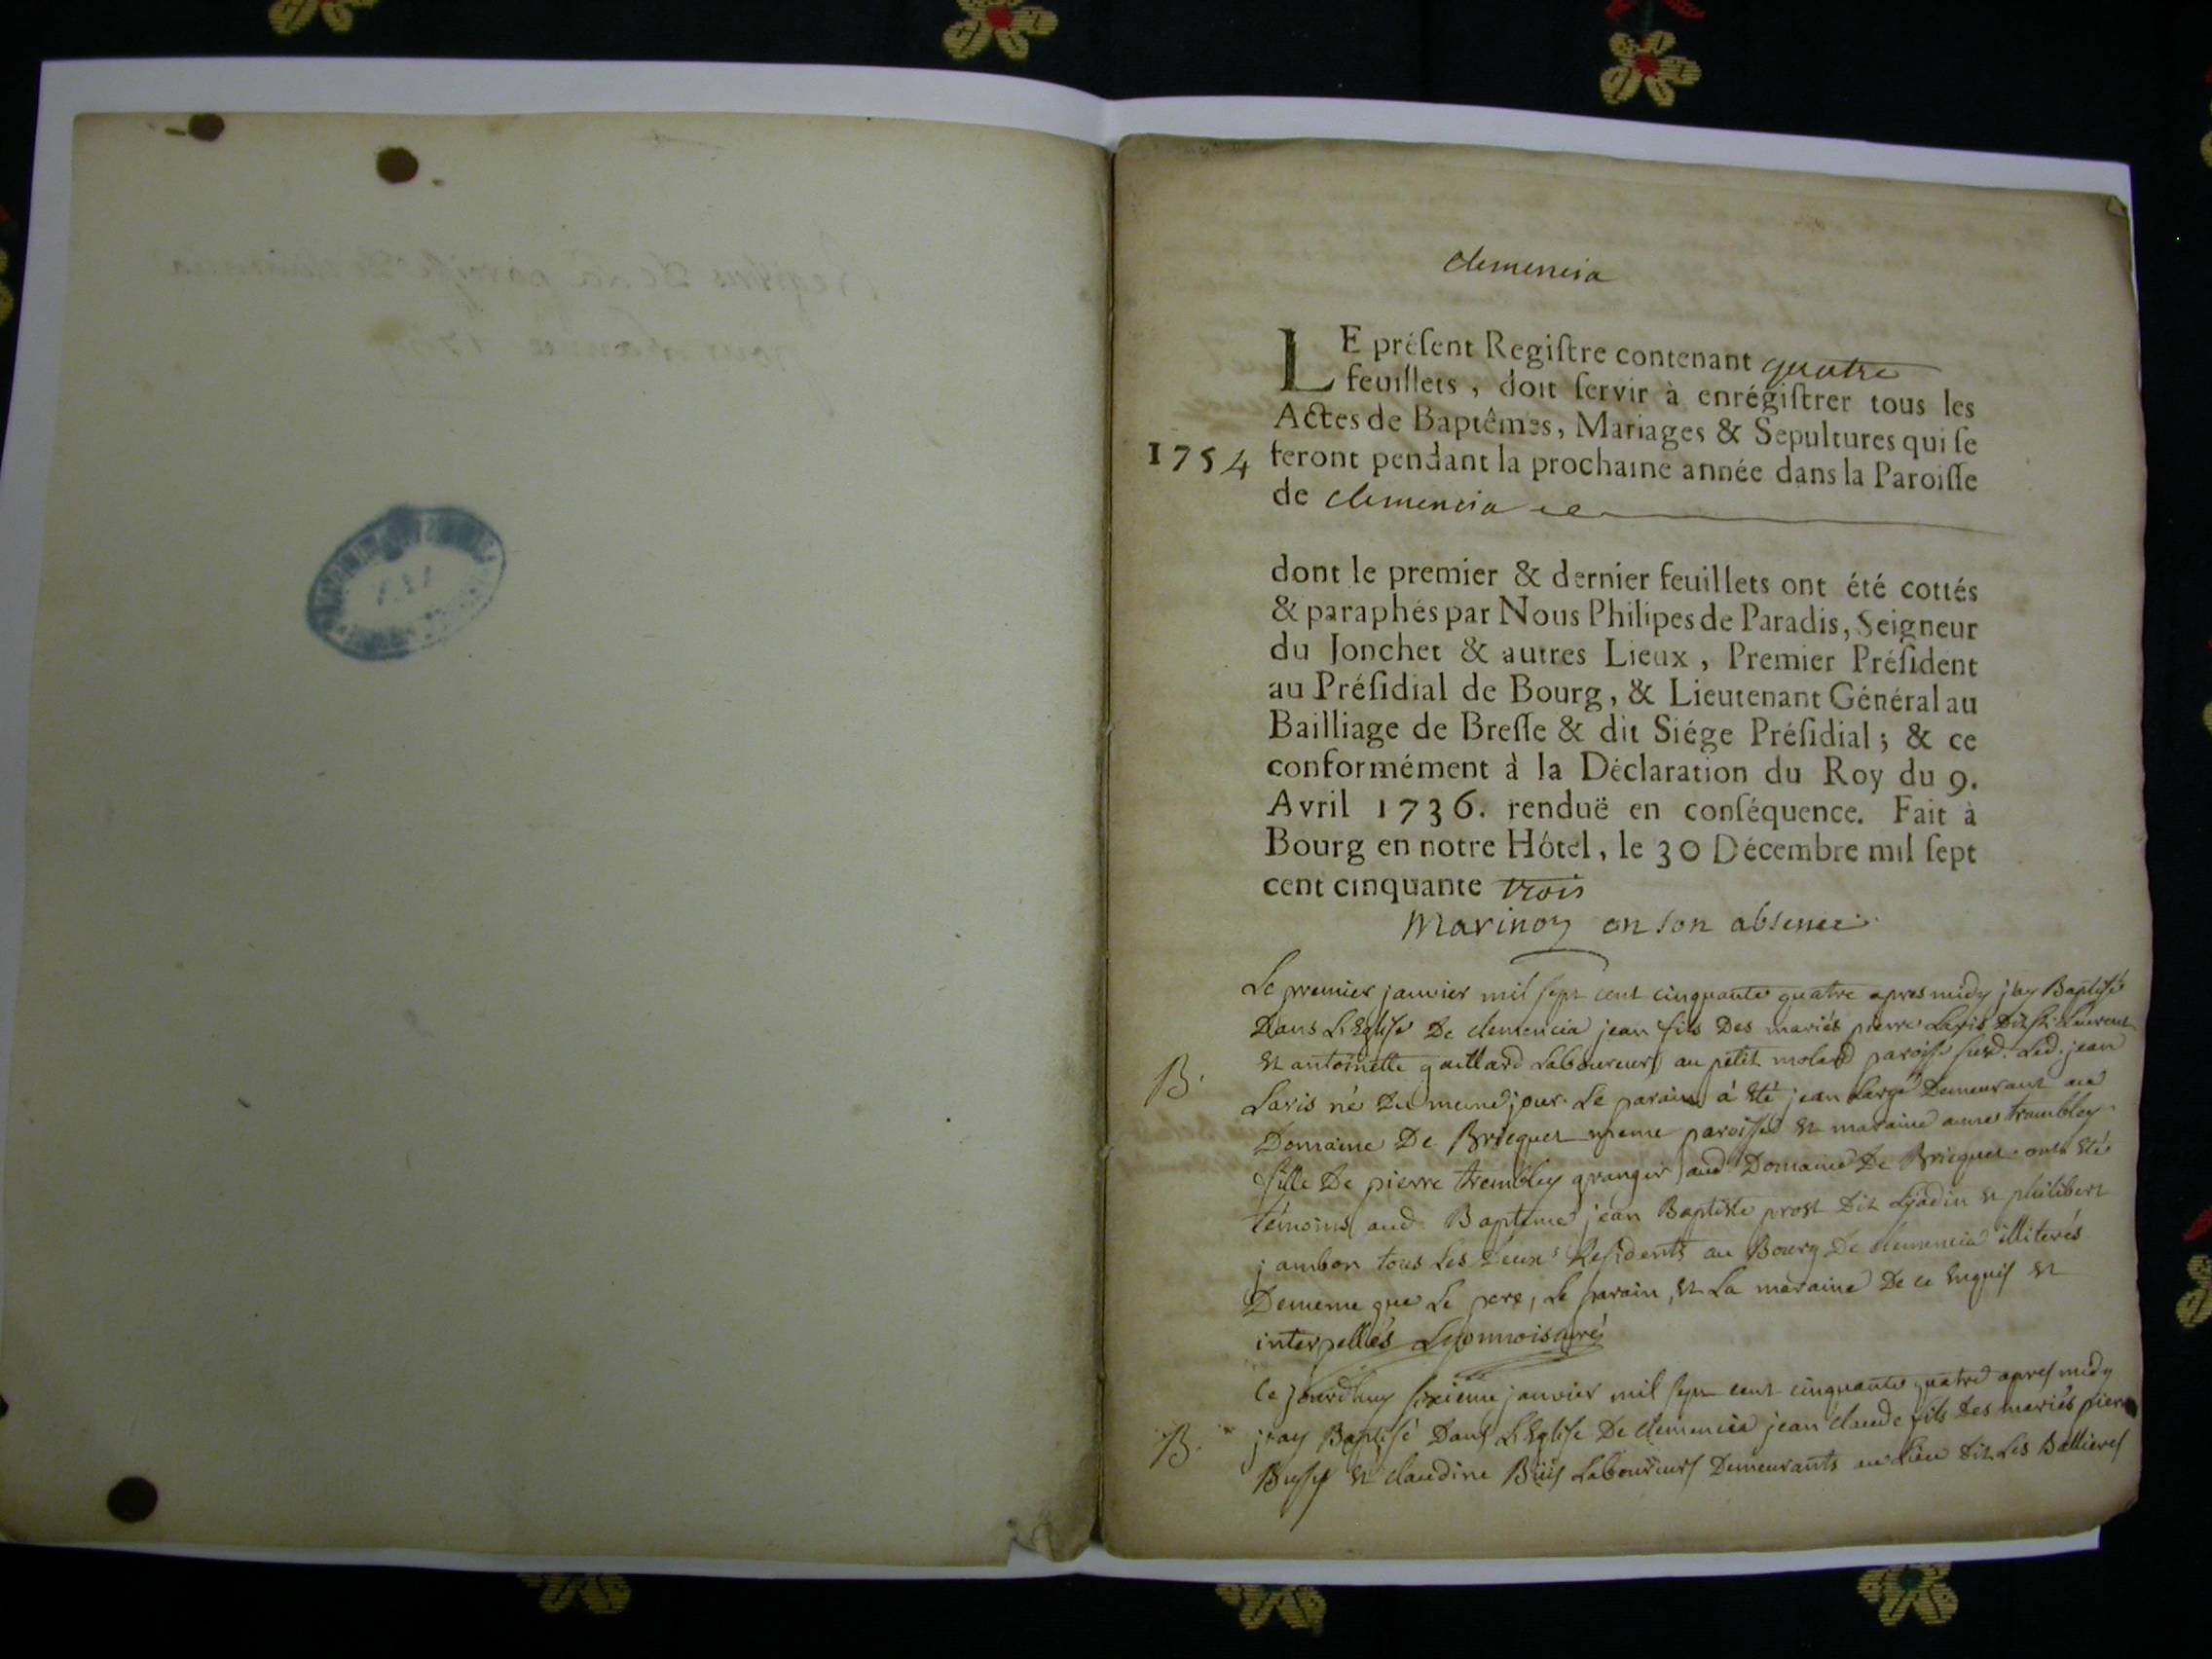 clemencia
LE préſent Regiſtre contenant quatre
feuillets, doit ſervir à enrégiſtrer tous les
Actes de Baptêmes, Mariages & Sepultures qui ſe
1754 feront pendant la prochaine année dans la Paroiſſe
de clemencia
dont le premier & dernier feuillets ont été cottés
& paraphés par Nous Philipes de Paradis, Seigneur
du Jonchet & autres Lieux, Premier Préſident
au Préſidial de Bourg, & Lieutenant Général au
Bailliage de Breſſe & dit Siége Préſidial; & ce
conformément à la Déclaration du Roy du 9.
Avril 1736. renduë en conſéquence. Fait à
Bourg en notre Hôtel, le 30 Décembre mil ſept
cent cinquante trois
en son absence
Le premier janvier mil sept cent cinquante quatre apres midy jay Baptisé
Dans L'Eglise De clemencia jean fils Des mariés pierre Laris Dit st Laurent
Et antoinette gaillard Laboureurs au petit molard paroisse susd. Led. jean
B. Laris né Du meme jour. Le parain á Eté jean Large Demeurant au
Domaine De Bricquet meme paroisse Et maraine anne trambley
fille De pierre trembley granger aud Domaine De Bricquet. ont Eté
témoins aud. Bapteme jean Baptiste prost Dit Et philibert
jambon tous Les Deux Residents au Bourg De clemencia illiterés
Dememe que Le pere, Le parain, Et La maraine De ce Enquis Et
interpellés Lyonnois curé
Ce jourdhuy sixieme janvier mil sept cent cinquante quatre apres midy
B. jay Baptisé Dans L'Eglise De clemencia jean claude fils Des mariés pierre
Et claudine Laboureurs Demeurants au Lieu Dit Les